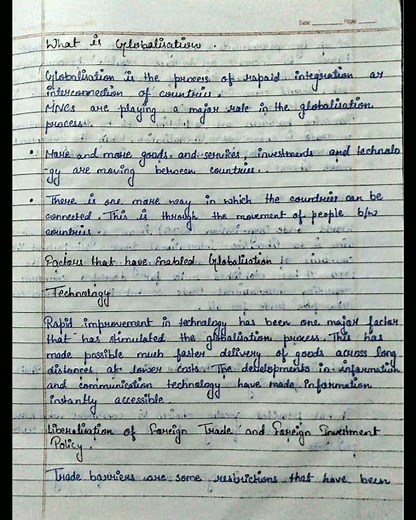 Date: Page:
What is Globalisation.
Globalisation is the process of rapaid integration or
interconnection of countries.
MNCs are playing a major role in the globalisation
process.
• More and more goods and services, investments and technolo
-gy are moving between countries.
• There is one more way in which the countries can be
connected. This is through the movement of people b/w
countries.
Factors that have Enabled Globalisation :
Technology
Rapid improvement in technology has been one major factor
that has stimulated the globalisation process. This has
made possible much faster delivery of goods across long
distances at lower costs. The developments in information
and communication technology have made information
instantly accessible.
Liberalisation of Foreign Trade and Foreign Investment
Policy.
Trade barriers are some restrictions that have been